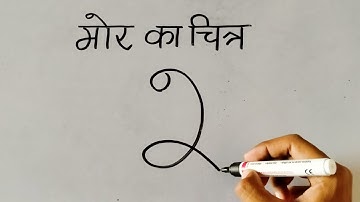 मोर का चित्र
२